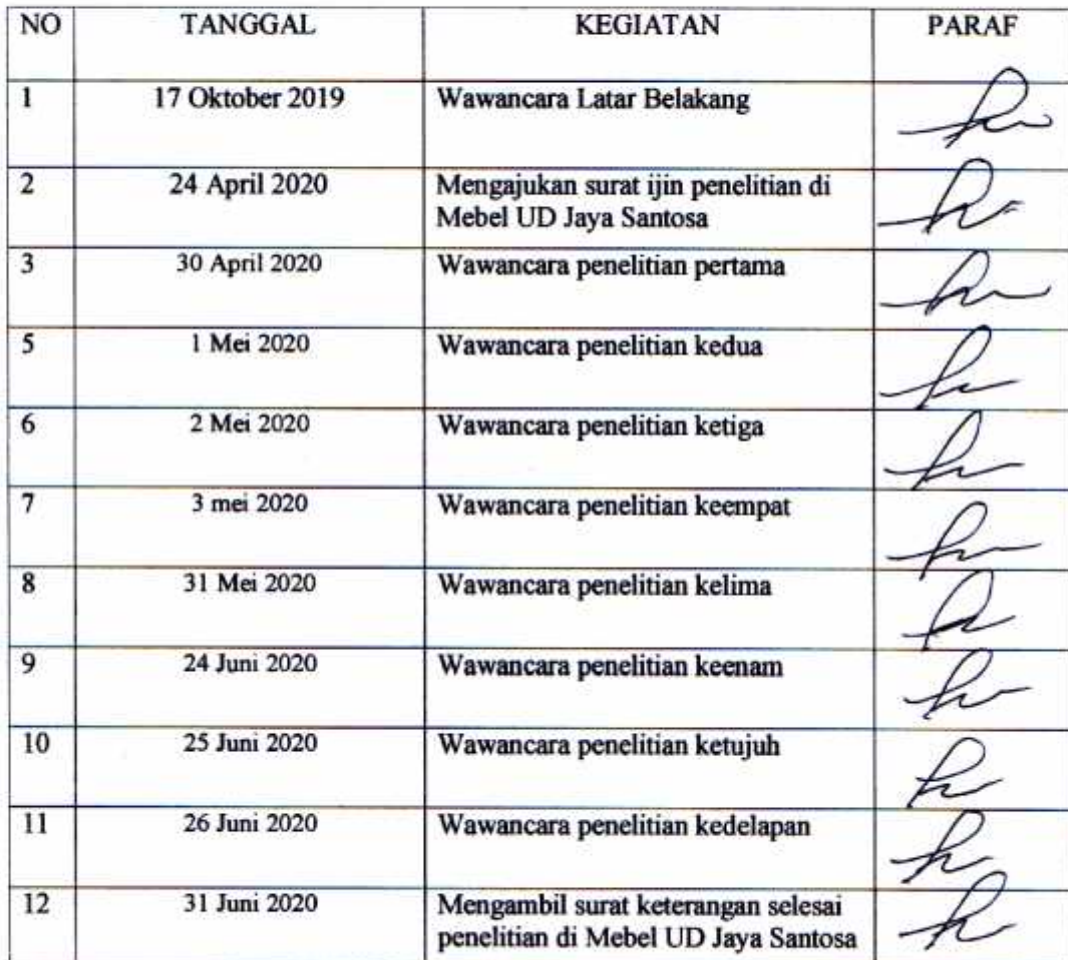 NO TANGGAL KEGIATAN PARAF
1 17 Oktober 2019 Wawancara Latar Belakang
2 24 April 2020 Mengajukan surat ijin penelitian di
Mebel UD Jaya Santosa
3 30 April 2020 Wawancara penelitian pertama
5 1 Mei 2020 Wawancara penelitian kedua
6 2 Mei 2020 Wawancara penelitian ketiga
7 3 mei 2020 Wawancara penelitian keempat
8 31 Mei 2020 Wawancara penelitian kelima
9 24 Juni 2020 Wawancara penelitian keenam
10 25 Juni 2020 Wawancara penelitian ketujuh
11 26 Juni 2020 Wawancara penelitian kedelapan
12 31 Juni 2020 Mengambil surat keterangan selesai
penelitian di Mebel UD Jaya Santosa